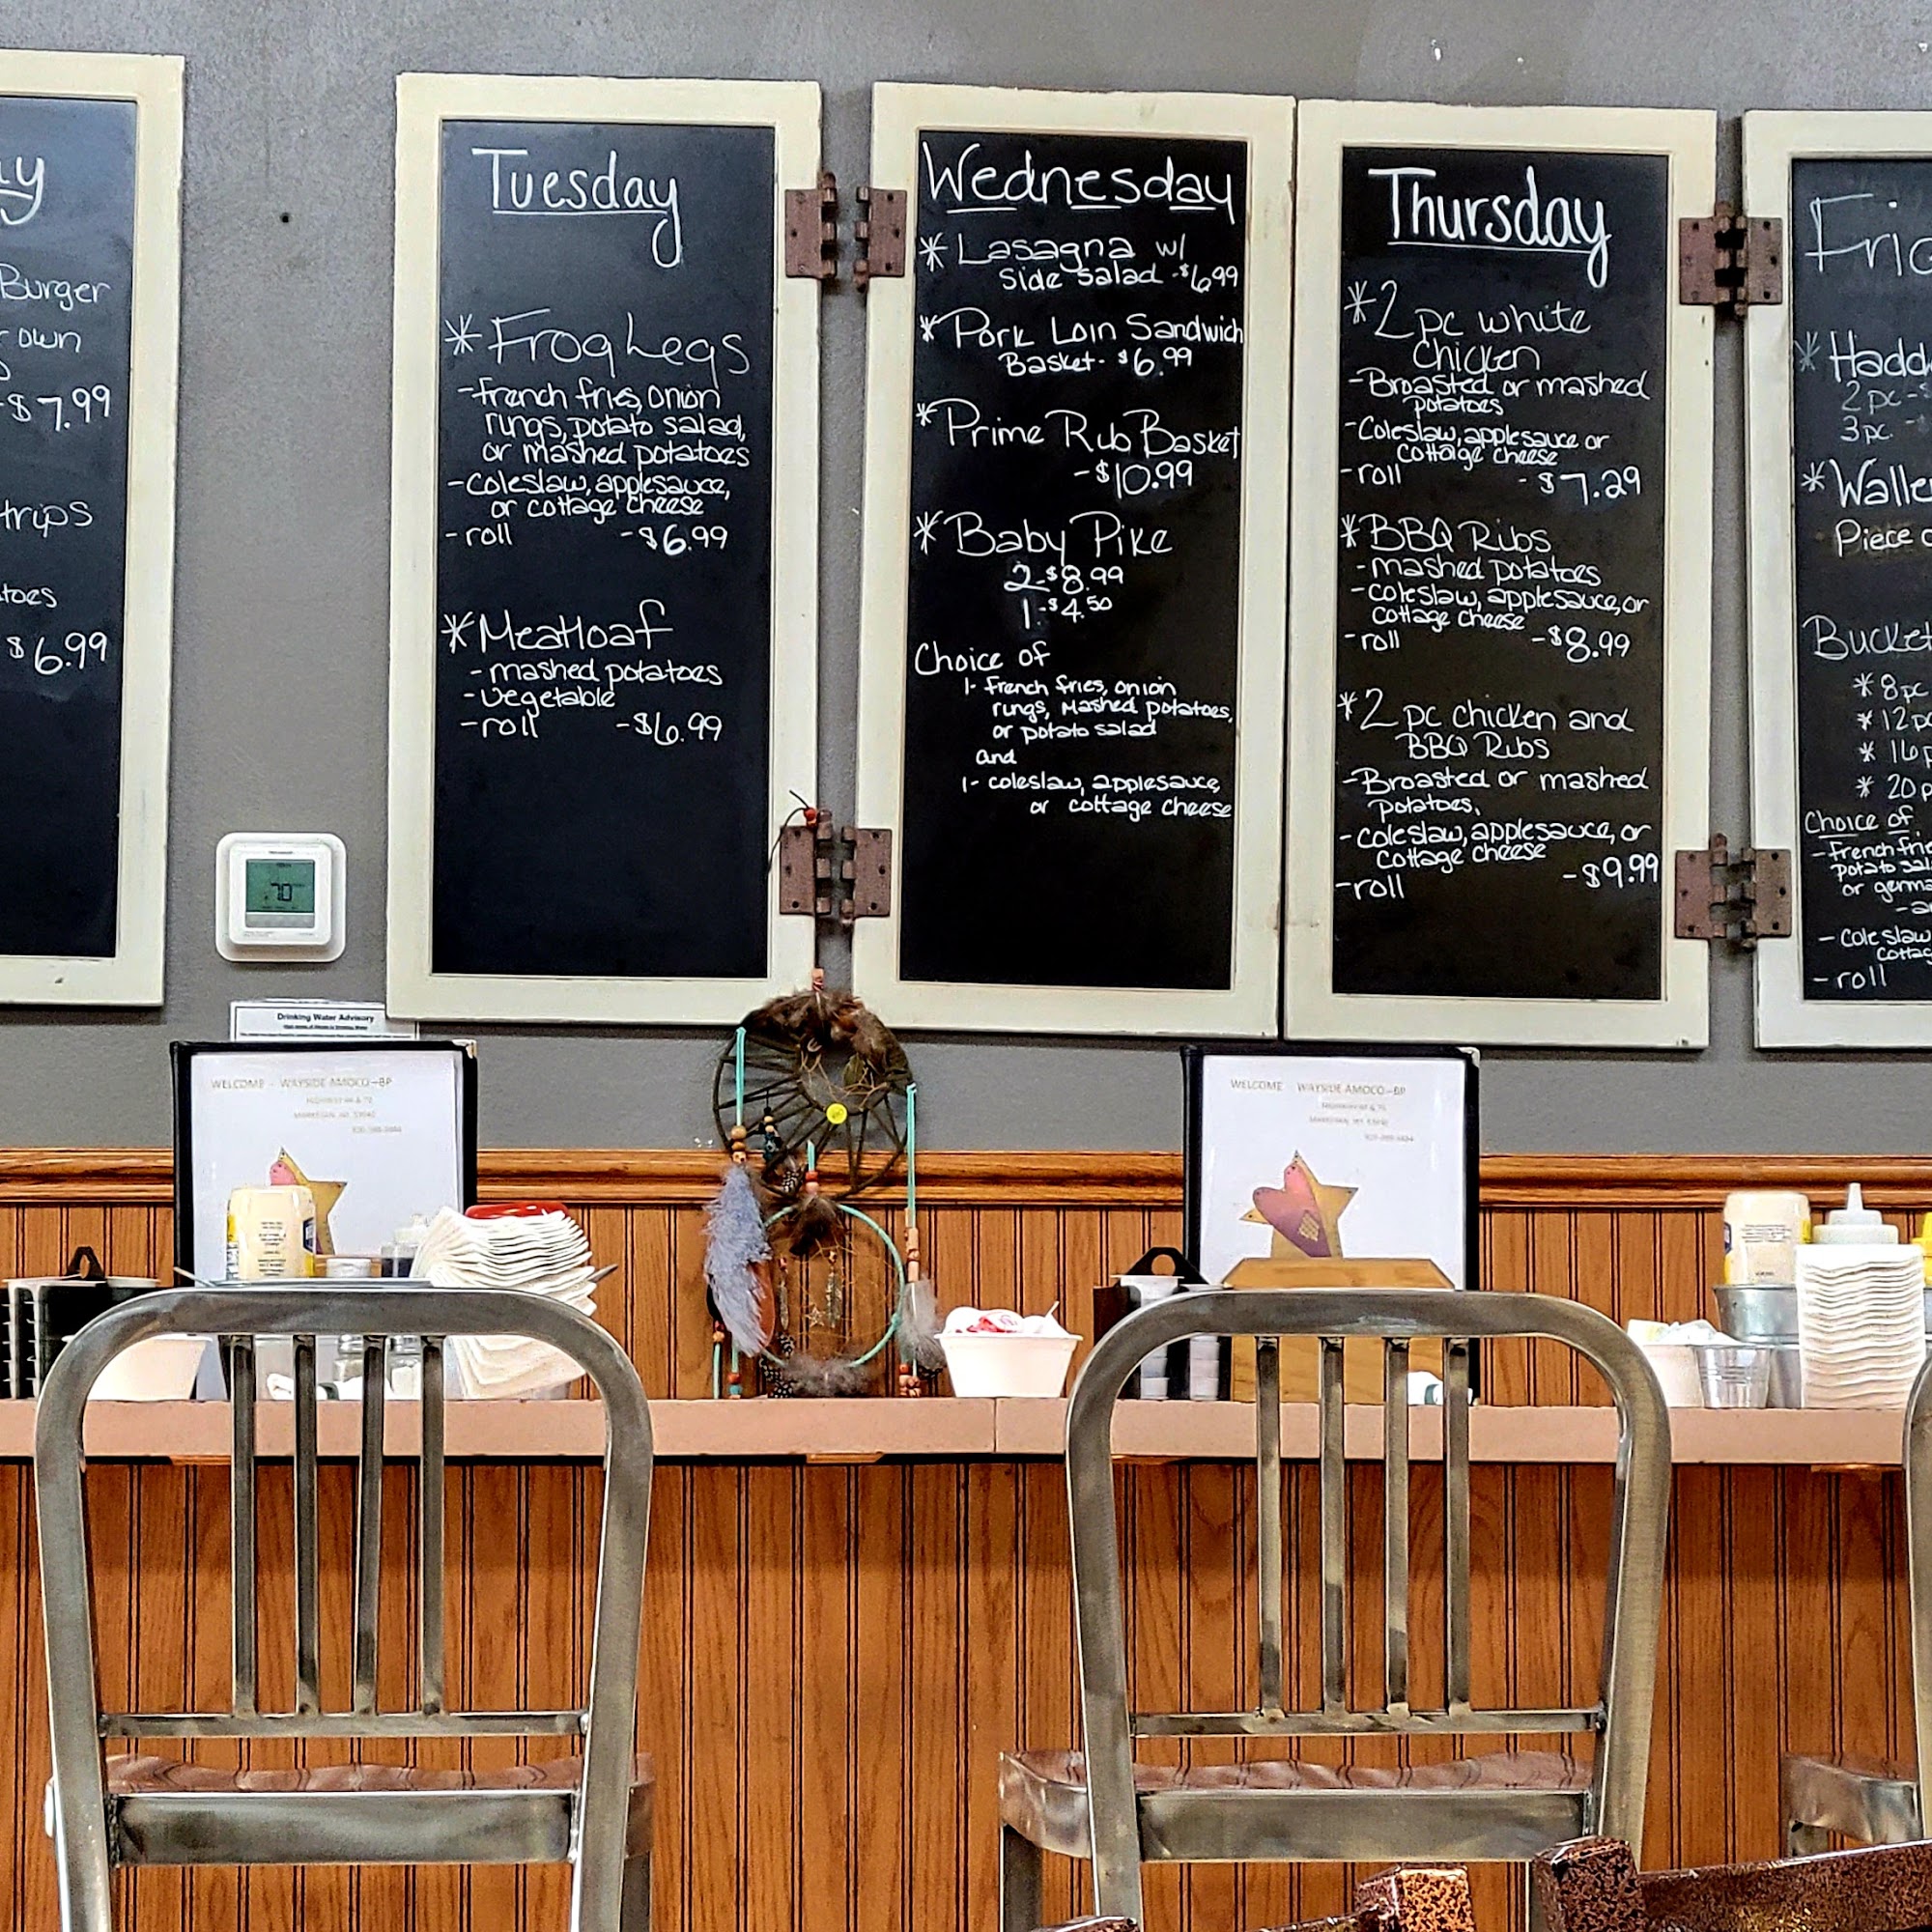 Burger
own
$7.99
$6.99
Tuesday
*Frog Legs
-french fries, onion
rings, potato salad,
or mashed potatoes
-coleslaw, applesauce,
or cottage cheese
-roll -$6.99
*Meatloaf
-mashed potatoes
-vegetable
-roll -$6.99
Wednesday
*Lasagna w/
side salad -$6.99
*Pork Loin Sandwich
Basket- $6.99
*Prime Rib Basket
-$10.99
*Baby Pike
2-$8.99
1-$4.50
Choice of
1- french fries, onion
rings, mashed potatoes,
or potato salad
and
1- coleslaw, applesauce,
or cottage cheese
Thursday
*2 pc white
chicken
-Broasted or mashed
potatoes
-Coleslaw, applesauce or
cottage cheese
-roll -$7.29
*BBQ Ribs
-mashed potatoes
-coleslaw, applesauce, or
cottage cheese
-roll -$8.99
*2 pc chicken and
BBQ Ribs
-Broasted or mashed
potatoes,
-coleslaw, applesauce, or
cottage cheese -$9.99
-roll
2 pc-
3 pc.
Piece
*8pc
*12pc
Choice of
or
-coleslaw
-roll
70
Drinking Water Advisory
WELCOME - WAYSIDE AMOCO-BP
WELCOME WAYSIDE AMOCO-BP